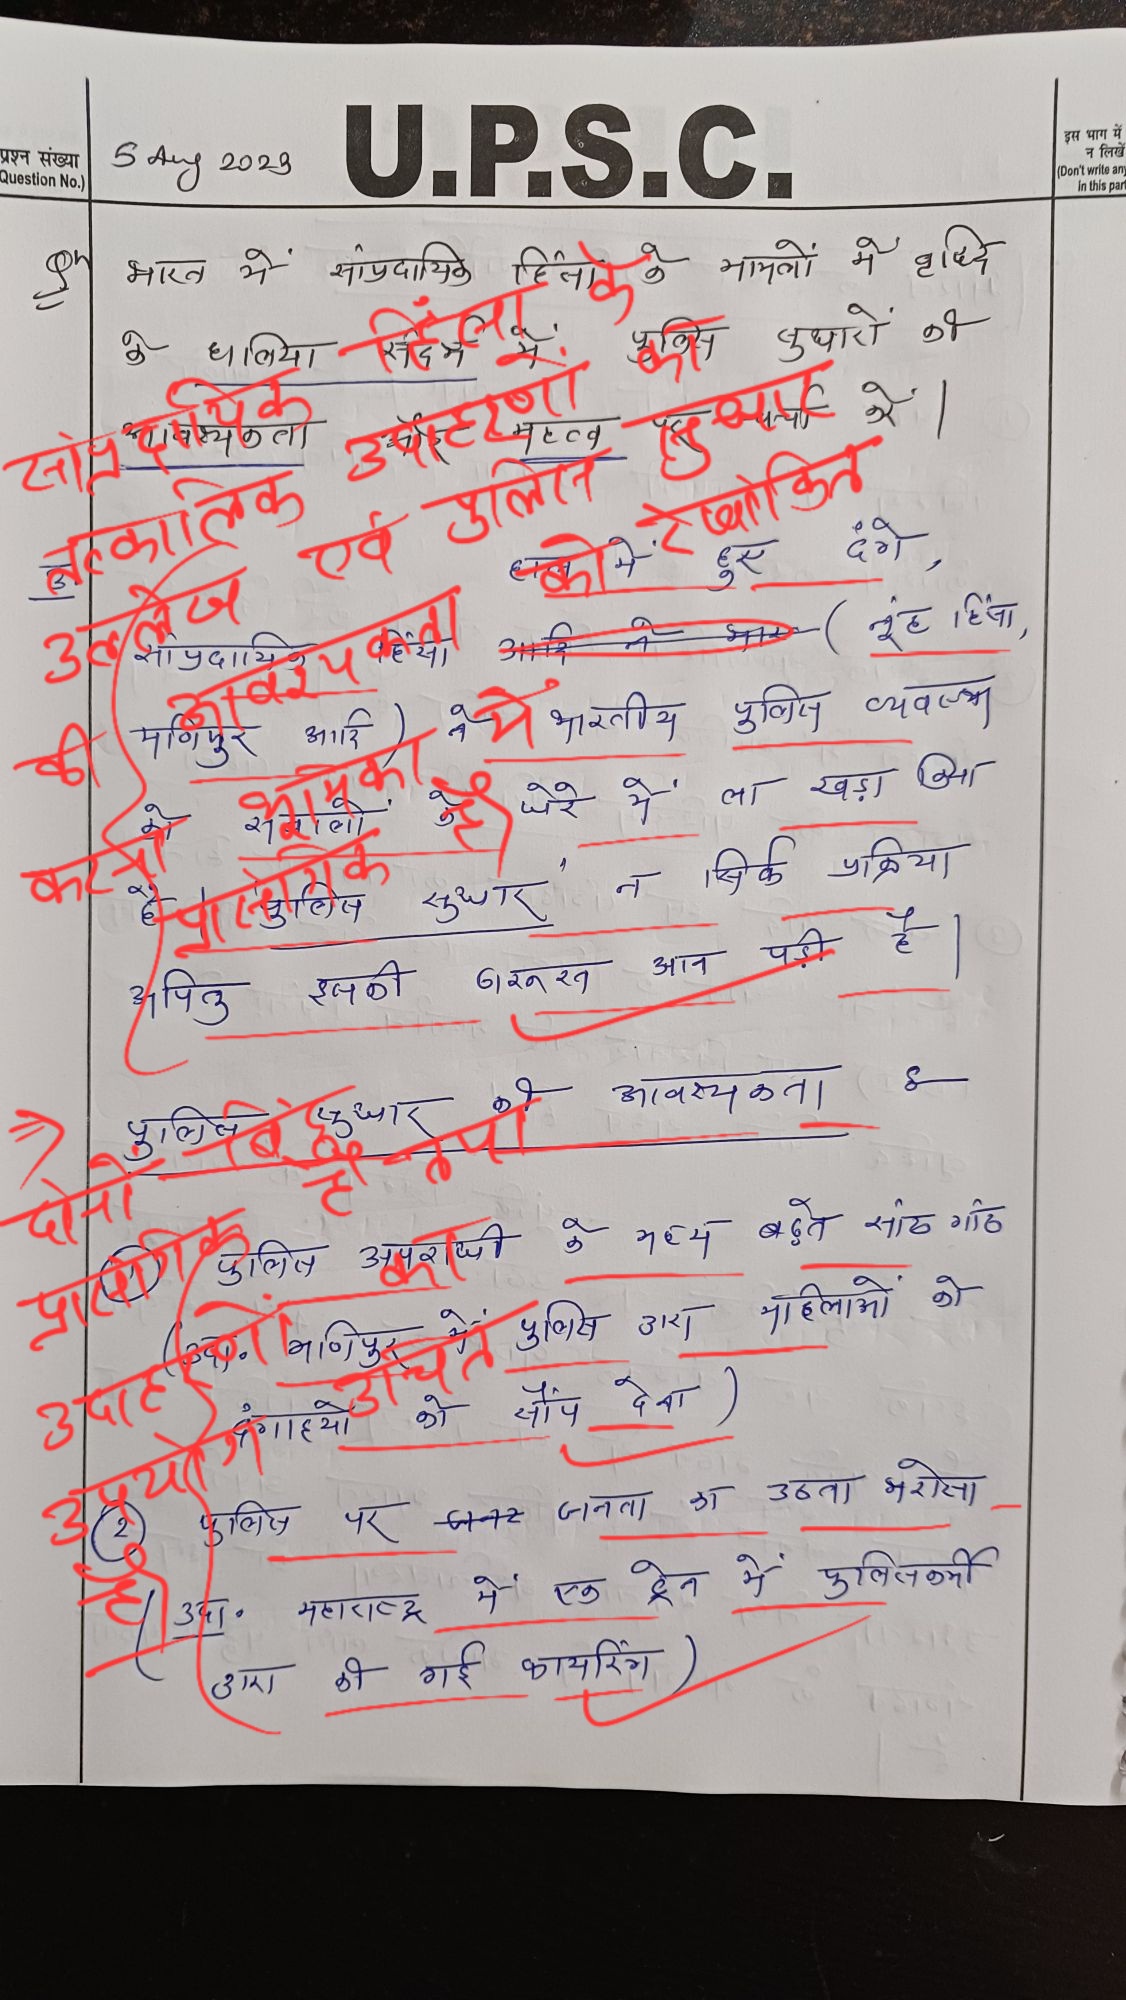 U.P.S.C.
प्रश्न संख्या
(Question No.)
5 Aug 2023
इस भाग में
न लिखें
(Don't write any
in this part
प्रश्न भारत में सांप्रदायिक हिंसा के मामलों में वृद्धि
के हालिया संदर्भ में पुलिस सुधारों की
आवश्यकता और महत्व पर चर्चा करें।
उ
हाल में हुए दंगे,
सांप्रदायिक हिंसा आदि ने भार (नूंह हिंसा,
मणिपुर आदि) ने भारतीय पुलिस व्यवस्था
को सवालों के घेरे में ला खड़ा किया
है। 'पुलिस सुधार' न सिर्फ प्रक्रिया
अपितु इसकी जरूरत आन पड़ी है।
पुलिस सुधार की आवश्यकता :-
(1) पुलिस अपराधी के मध्य बढ़ते सांठ गांठ
(उदा. मणिपुर में पुलिस द्वारा महिलाओं को
दंगाइयों को सौंप देना)
(2) पुलिस पर जनता का उठता भरोसा
(उदा. महाराष्ट्र में एक ट्रेन में पुलिसकर्मी
द्वारा की गई फायरिंग)
सांप्रदायिक हिंसा के
तत्कालिक उदाहरणों का
उल्लेख एवं पुलिस सुधार
की आवश्यकता को रेखांकित
करती भूमिका में
प्रासंगिक है।
दोनों बिंदु
प्रासंगिक है तथा
उदाहरणों का
उपयोग उचित
है।